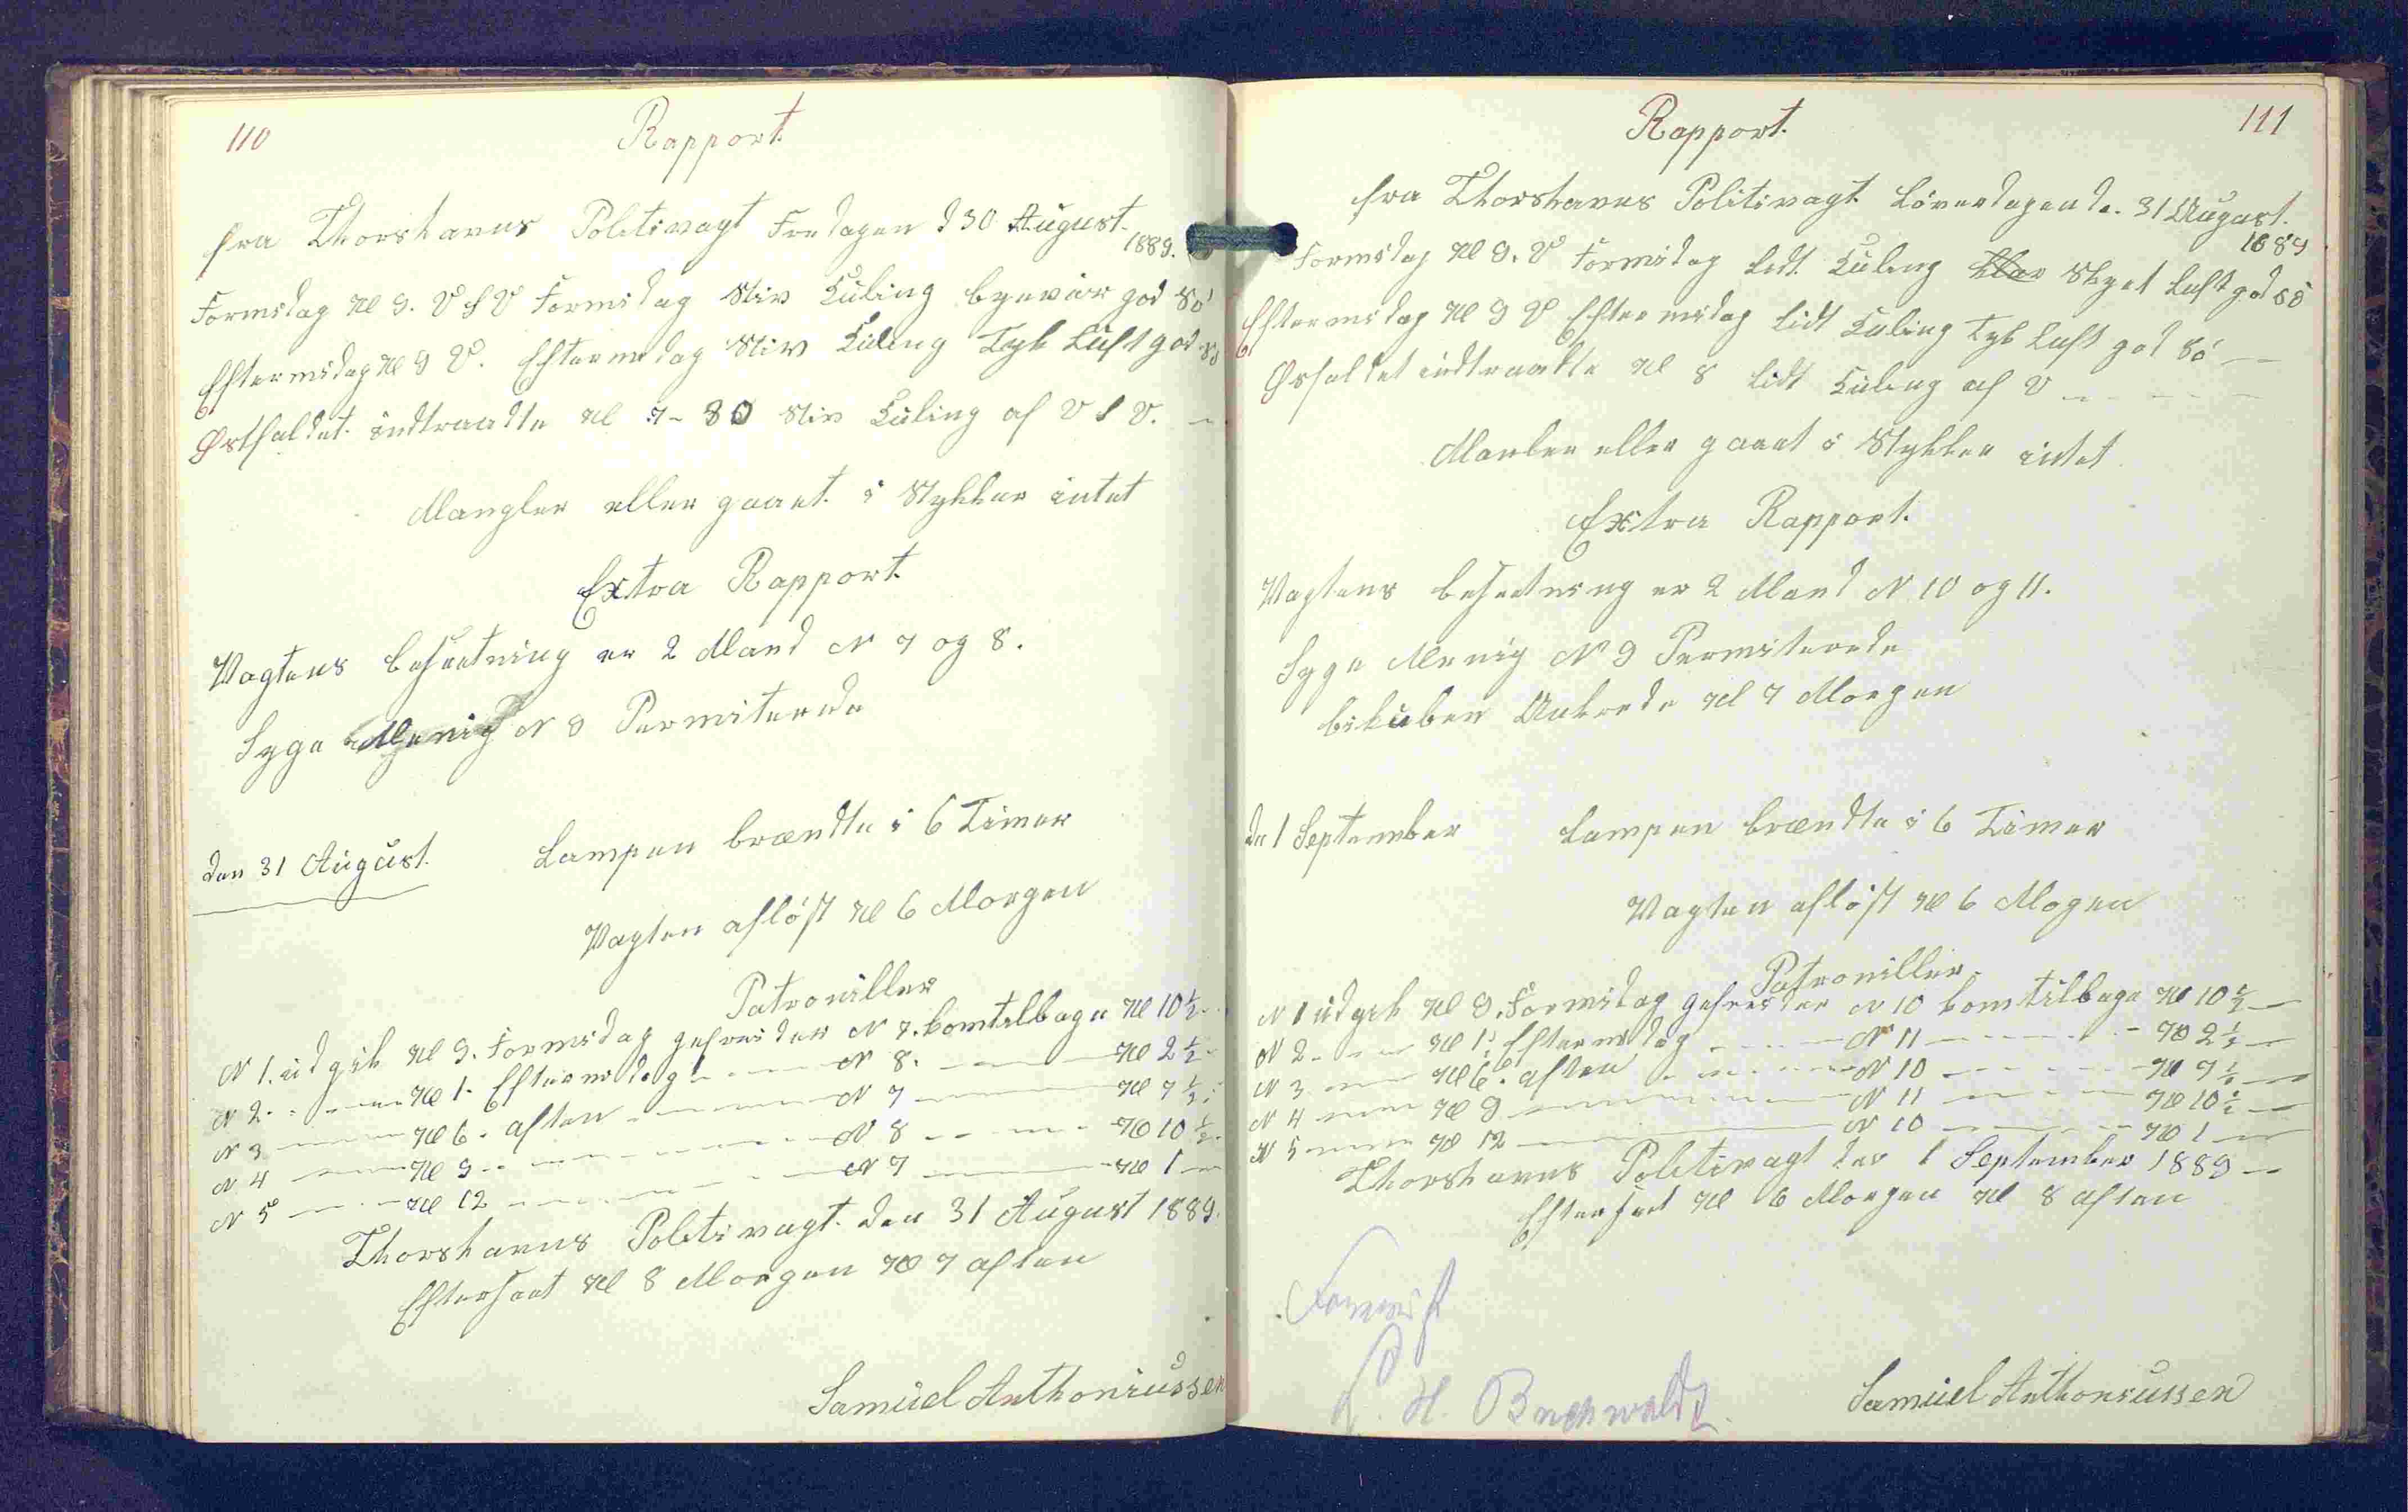 110
Rapport.
fra Thorshavns Politivagt Fredagen d 30 August.
1889.
Formidag Kl 9. V S V Formidag Stiv Kuling bygevær god Sö
Eftermidag Kl 9 V. Eftermidag Stiv Kuling Tyk Luft god Sö
Østfaldet indtraadte Kl 7-30 Stiv Kuling af V S V.
Mangler eller gaaet i Stykker intet
Extra Rapport.
Vagtens besætning er 2 Mand N 7 og 8.
Syge Menig N 9 Permiterede
Den 31 August. Lampen brændte i 6 Timer
Vagten afløst Kl 6 Morgen
Patrouiller
N 1. udgik Kl 9. Formidag gefreider N 7. kom tilbage Kl 10 1/2
N 2. Kl 1. Eftermidag N 8. Kl 2 1/2
N 3 Kl 6. aften N 7 Kl 7 1/2
N 4 Kl 9 N 8 Kl 10 1/2
N 5 Kl 12 N 7 Kl 1
Thorshavns Politivagt. den 31 August 1889.
Efterseet Kl 8 Morgen Kl 7 aften
Samuel Anthoniussen
111
Rapport.
fra Thorshavns Politivagt Löverdagen d. 31 August.
1889
Formidag Kl 9. V Formidag Lidt Kuling Klar Skyet Luft god Sö
Eftermidag Kl 9 V Eftermidag Lidt Kuling Tyk Luft god Sö
Øsfaldet indtraadte Kl 8 Lidt Kuling af V
Manler eller gaaet i Stykker intet
Extra Rapport.
Vagtens besætning er 2 Mand N 10 og 11.
Syge Menig N 9 Permiterede
Ankrede Kl 7 Morgen
De 1 September Lampen brændte i 6 Timer
Vagten afløst Kl 6 Mogen
Patrouiller
N 1 udgik Kl 9. Formidag gefreider N 10 kom tilbage Kl 10 1/2
N 2 Kl 1. Eftermidag N 11 Kl 2 1/2
N 3 Kl 6. aften N 10 Kl 7 1/2
N 4 Kl 9 N 11 Kl 10 1/2
N 5 Kl 12 N 10 Kl 1
Thorshavns Politivagt den 1 September 1889
Efterseet Kl 6 Morgen Kl 8 aften
Forevist
H. Buchwaldt.
Samuel Anthoniussen